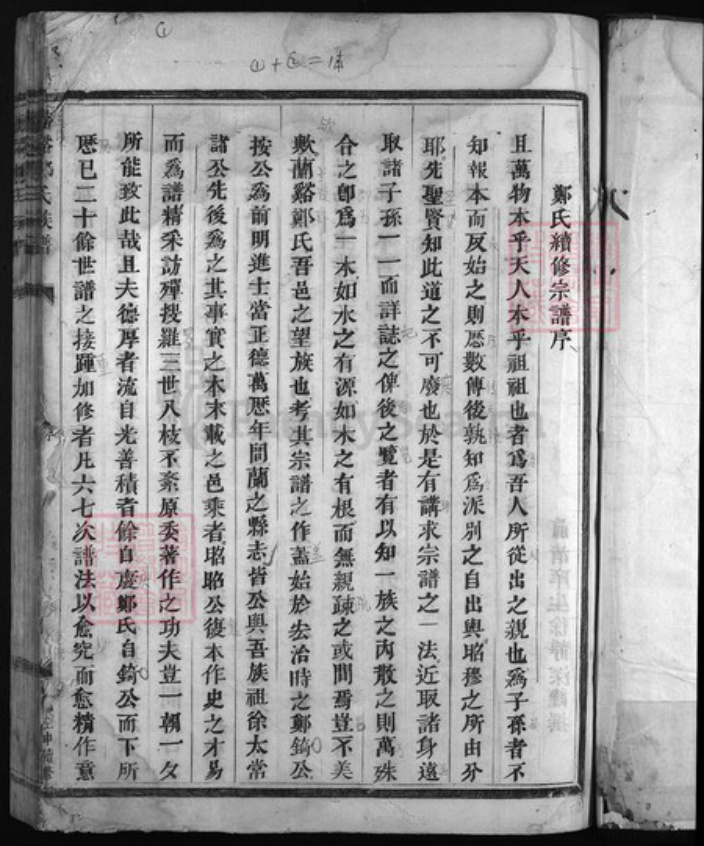 ①
①+②=1本
鄭氏續修宗譜序
且萬物本乎天人本乎祖祖也者爲吾人所從出之親也爲子孫者不
知報本而反始之則歷數傳後孰知爲派別之自出與昭穆之所由分
耶先聖賢知此道之不可廢也於是有講求宗譜之一法近取諸身遠
取諸子孫一一而詳誌之俾後之覽者有以知一族之內散之則萬殊
合之卽爲一本如水之有源如木之有根而無親疎之或間焉豈不美
歟蘭谿鄭氏吾邑之望族也考其宗譜之作蓋始於宏治時之鄭錡公
按公爲前明進士當正德萬歷年間蘭之縣志皆公與吾族祖徐太常
諸公先後爲之其事實之本末載之邑乘者昭昭公復本作史之才易
而爲譜精采訪殫搜羅三世八枝不紊原委著作之功夫豈一朝一夕
所能致此哉且夫德厚者流自光善積者餘自慶鄭氏自錡公而下所
歷已二十餘世譜之接踵加修者凡六七次譜法以愈究而愈精作意